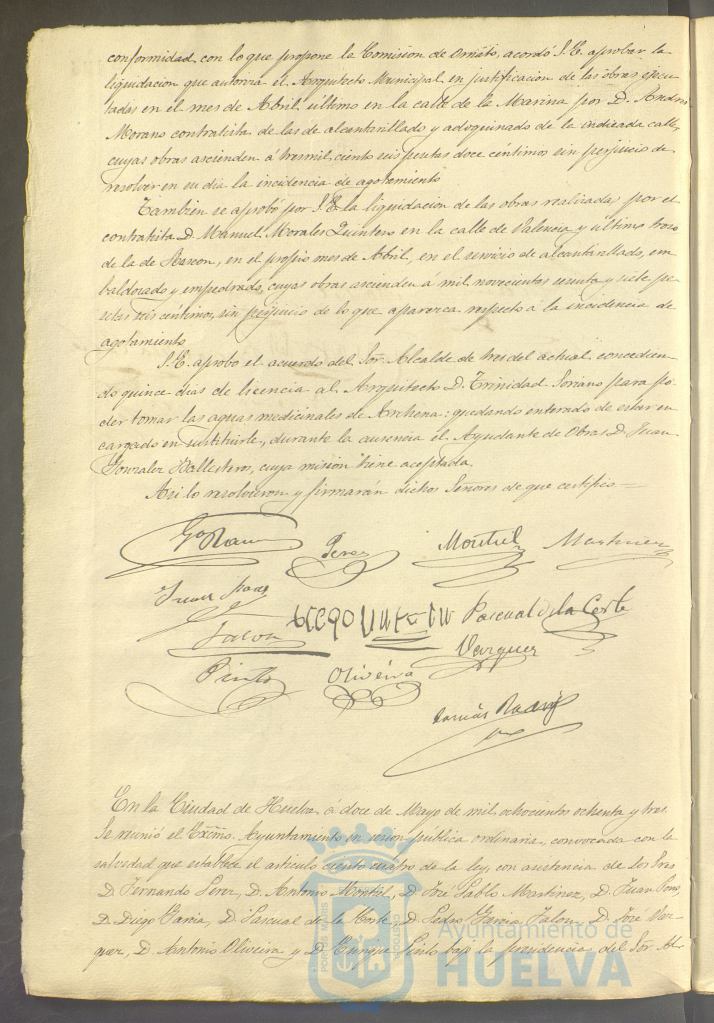 conformidad con lo que propone la Comision de Ornato, acordó S.E. aprobar la
liquidacion que autoriza el Arquitecto Municipal en justificacion de las obras ejecu
tadas en el mes de Abril último en la calle de la Marina por D. Andres
Morano contratista de las de alcantarillado y adoquinado de la indicada calle,
cuyas obras ascienden á tres mil ciento seis pesetas doce céntimos sin perjuicio de
resolver en su dia la incidencia de agotamiento
Tambien se aprobó por S.E. la liquidacion de las obras realizadas por el
contratista D. Manuel Morales Quintero en la calle de Palencia y último trozo
de la de Rascon, en el propio mes de Abril, en el servicio de alcantarillado, em
baldosado y empedrado, cuyas obras ascienden á mil novecientos sesenta y siete pe
setas seis céntimos, sin perjuicio de lo que aparezca respecto á la incidencia de
agotamiento
S.E. aprobó el acuerdo del Sor. Alcalde de tres del actual concedien
do quince dias de licencia al Arquitecto D. Trinidad Soriano para po
der tomar las aguas medicinales de Archena: quedando enterado de estar en
cargado en sustituirle, durante la ausencia el Ayudante de Obras D. Juan
Gonzalez Ballestero, cuya mision tiene aceptada.
Asi lo resolvieron y firmarán dichos Señores de que certifico =
Perez Montiel Martinez
Juan
Jalon Pascual de la Corte
Vazquez
Pinto Oliveira
En la Ciudad de Huelva á doce de Mayo de mil ochocientos ochenta y tres.
Se reunió el Excmo. Ayuntamiento en sesion pública ordinaria, convocada con la
salvedad que establece el articulo ciento cuatro de la ley, con asistencia de los Sres
D. Fernando Perez, D. Antonio Montiel, D. José Pablo Martinez, D. Juan
D. Diego Garcia, D. Pascual de la Corte D. Pedro Garcia Jalon, D. José Vaz
quez, D. Antonio Oliveira y D. Enrique Pinto bajo la presidencia del Sor. Al
Ayuntamiento de
HUELVA